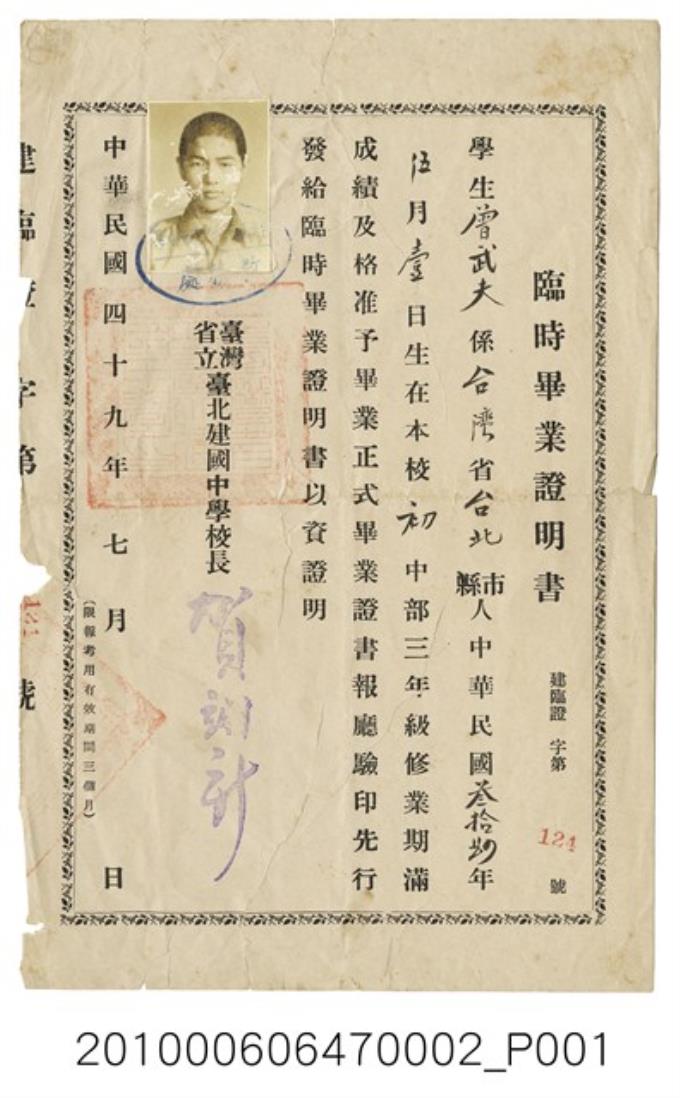 臨時畢業證明書
建臨證 字第 121 號
學生曾武夫係台灣省台北縣市人中華民國叁拾四年
伍月壹日生在本校初中部三年級修業期滿
成績及格准予畢業正式畢業證書報廳驗印先行
發給臨時畢業證明書以資證明
臺灣省立臺北建國中學校長
賀翊新
中華民國四十九年七月 日
(限報考用有效期間三個月)
建臨證字第 121 號
201000606470002_P001